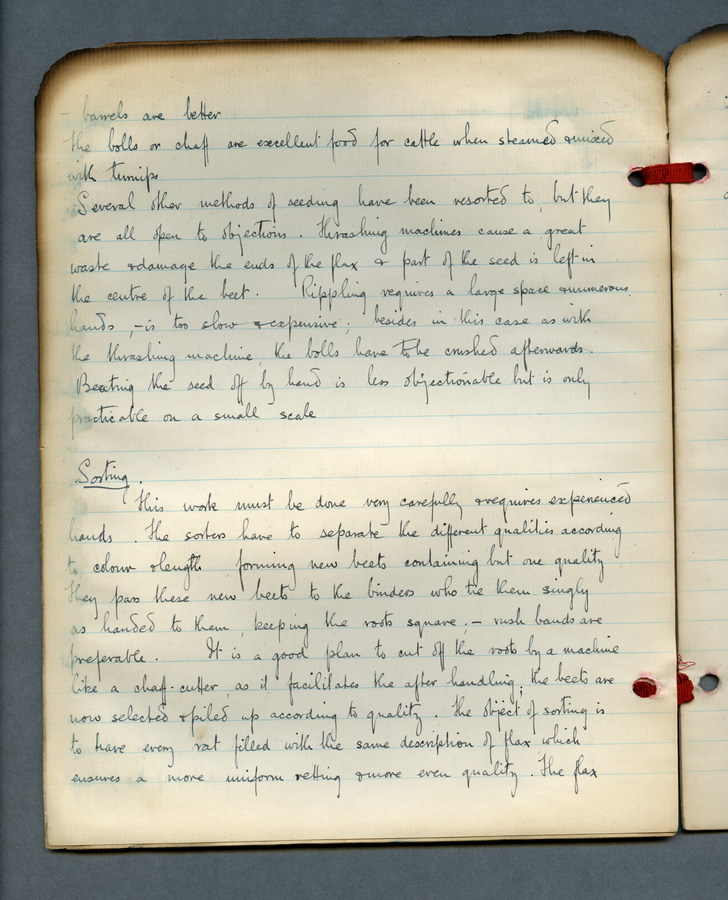 - barrels are better
The bolls or chaff are excellent food for cattle when steamed & mixed
with turnips
Several other methods of seeding have been resorted to, but they
are all open to objections. Thrashing machines cause a great
waste & damage the ends of the flax & part of the seed is left in
the centre of the beet. Rippling requires a large space & numerous
hands, - is too slow & expensive; besides in this case as with
the thrashing machine, the bolls have to be crushed afterwards.
Beating the seed off by hand is less objectionable but is only
practicable on a small scale
Sorting.
This work must be done very carefully & requires experienced
hands. The sorters have to separate the different qualities according
to colour & length, forming new beets containing but one quality
They pass these new beets to the binders who tie them singly
as handed to them, keeping the roots square; - rush bands are
preferable. It is a good plan to cut off the roots by a machine
like a chaff-cutter, as it facilitates the after handling; the beets are
now selected & piled up according to quality. The object of sorting is
to have every vat filled with the same description of flax, which
ensures a more uniform retting & more even quality. The flax